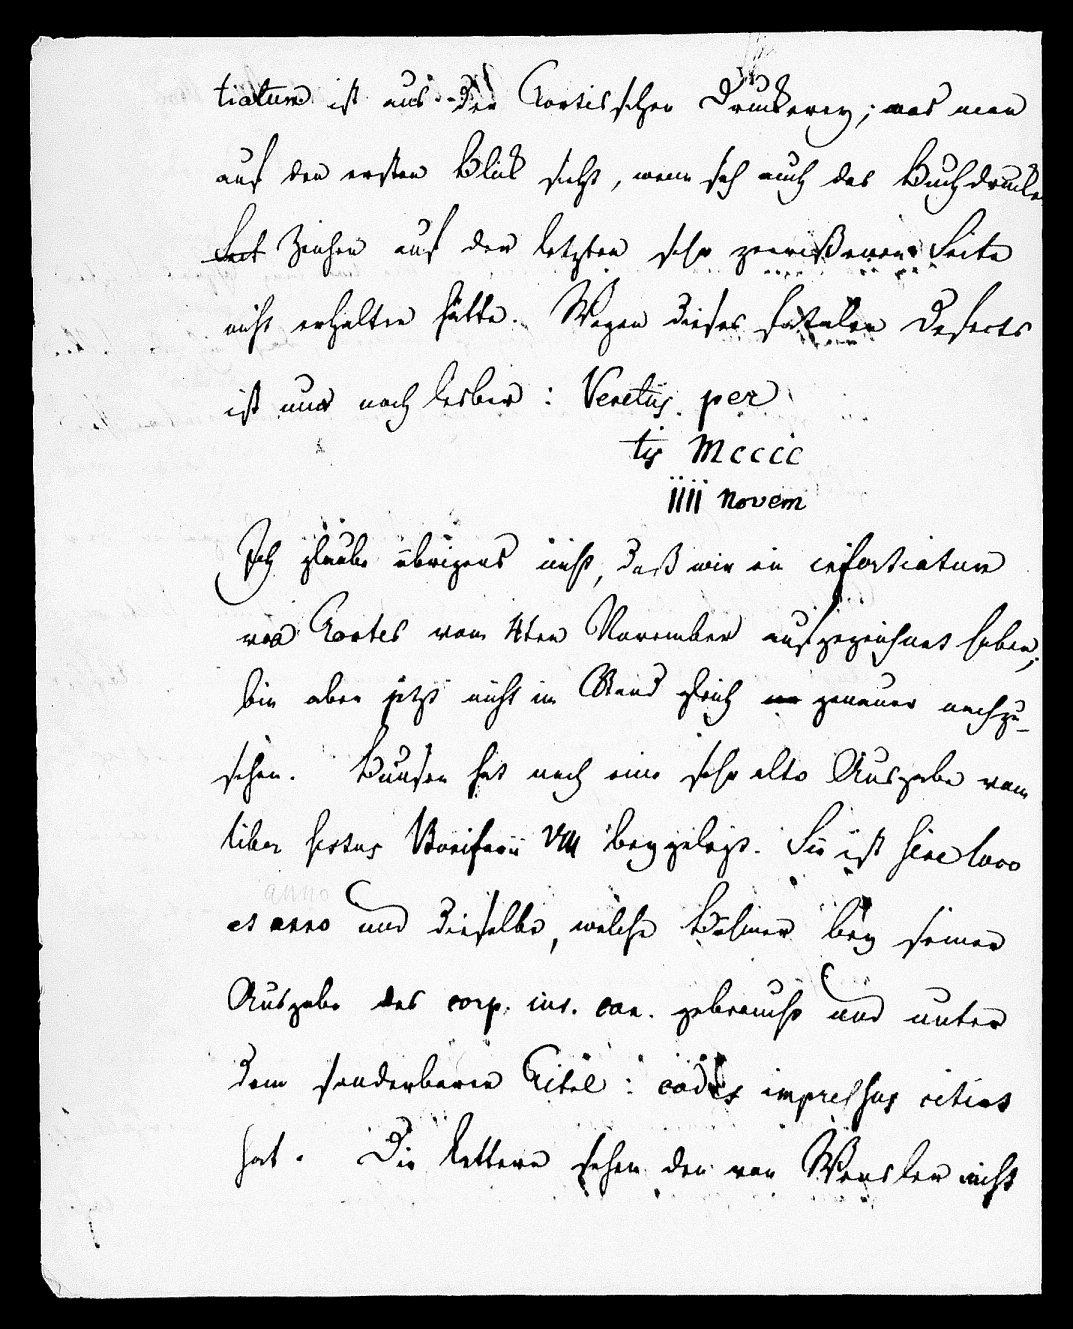 tiatum ist aus der Tortisschen Druckerey; was man
auf den ersten Blick sieht, wenn sich auch das Buchdrucker
Zeichen auf der letzten sehr zerrißenen Seite
nicht erhalten hätte. Wegen dieses fatalen Defects
ist nur noch lesbar: Venetiis per
tis Mcccc
iiii Novem
Ich glaube übrigens nicht, daß wir ein infortiatum
von Tortis vom 4ten November aufgezeichnet haben,
bin aber jetzt nicht im Stand gleich genauer nachzu-
sehen. Bunsen hat noch eine sehr alte Ausgabe vom
liber sextus Bonifacii VIII beygelegt. Sie ist sine loco
anno
et anno und dieselbe, welche Böhmer bey seiner
Ausgabe des corp. iur. can. gebraucht und unter
dem sonderbaren Titel: codex impressus citirt
hat. Die Lettern sehen den von Wenßler nicht